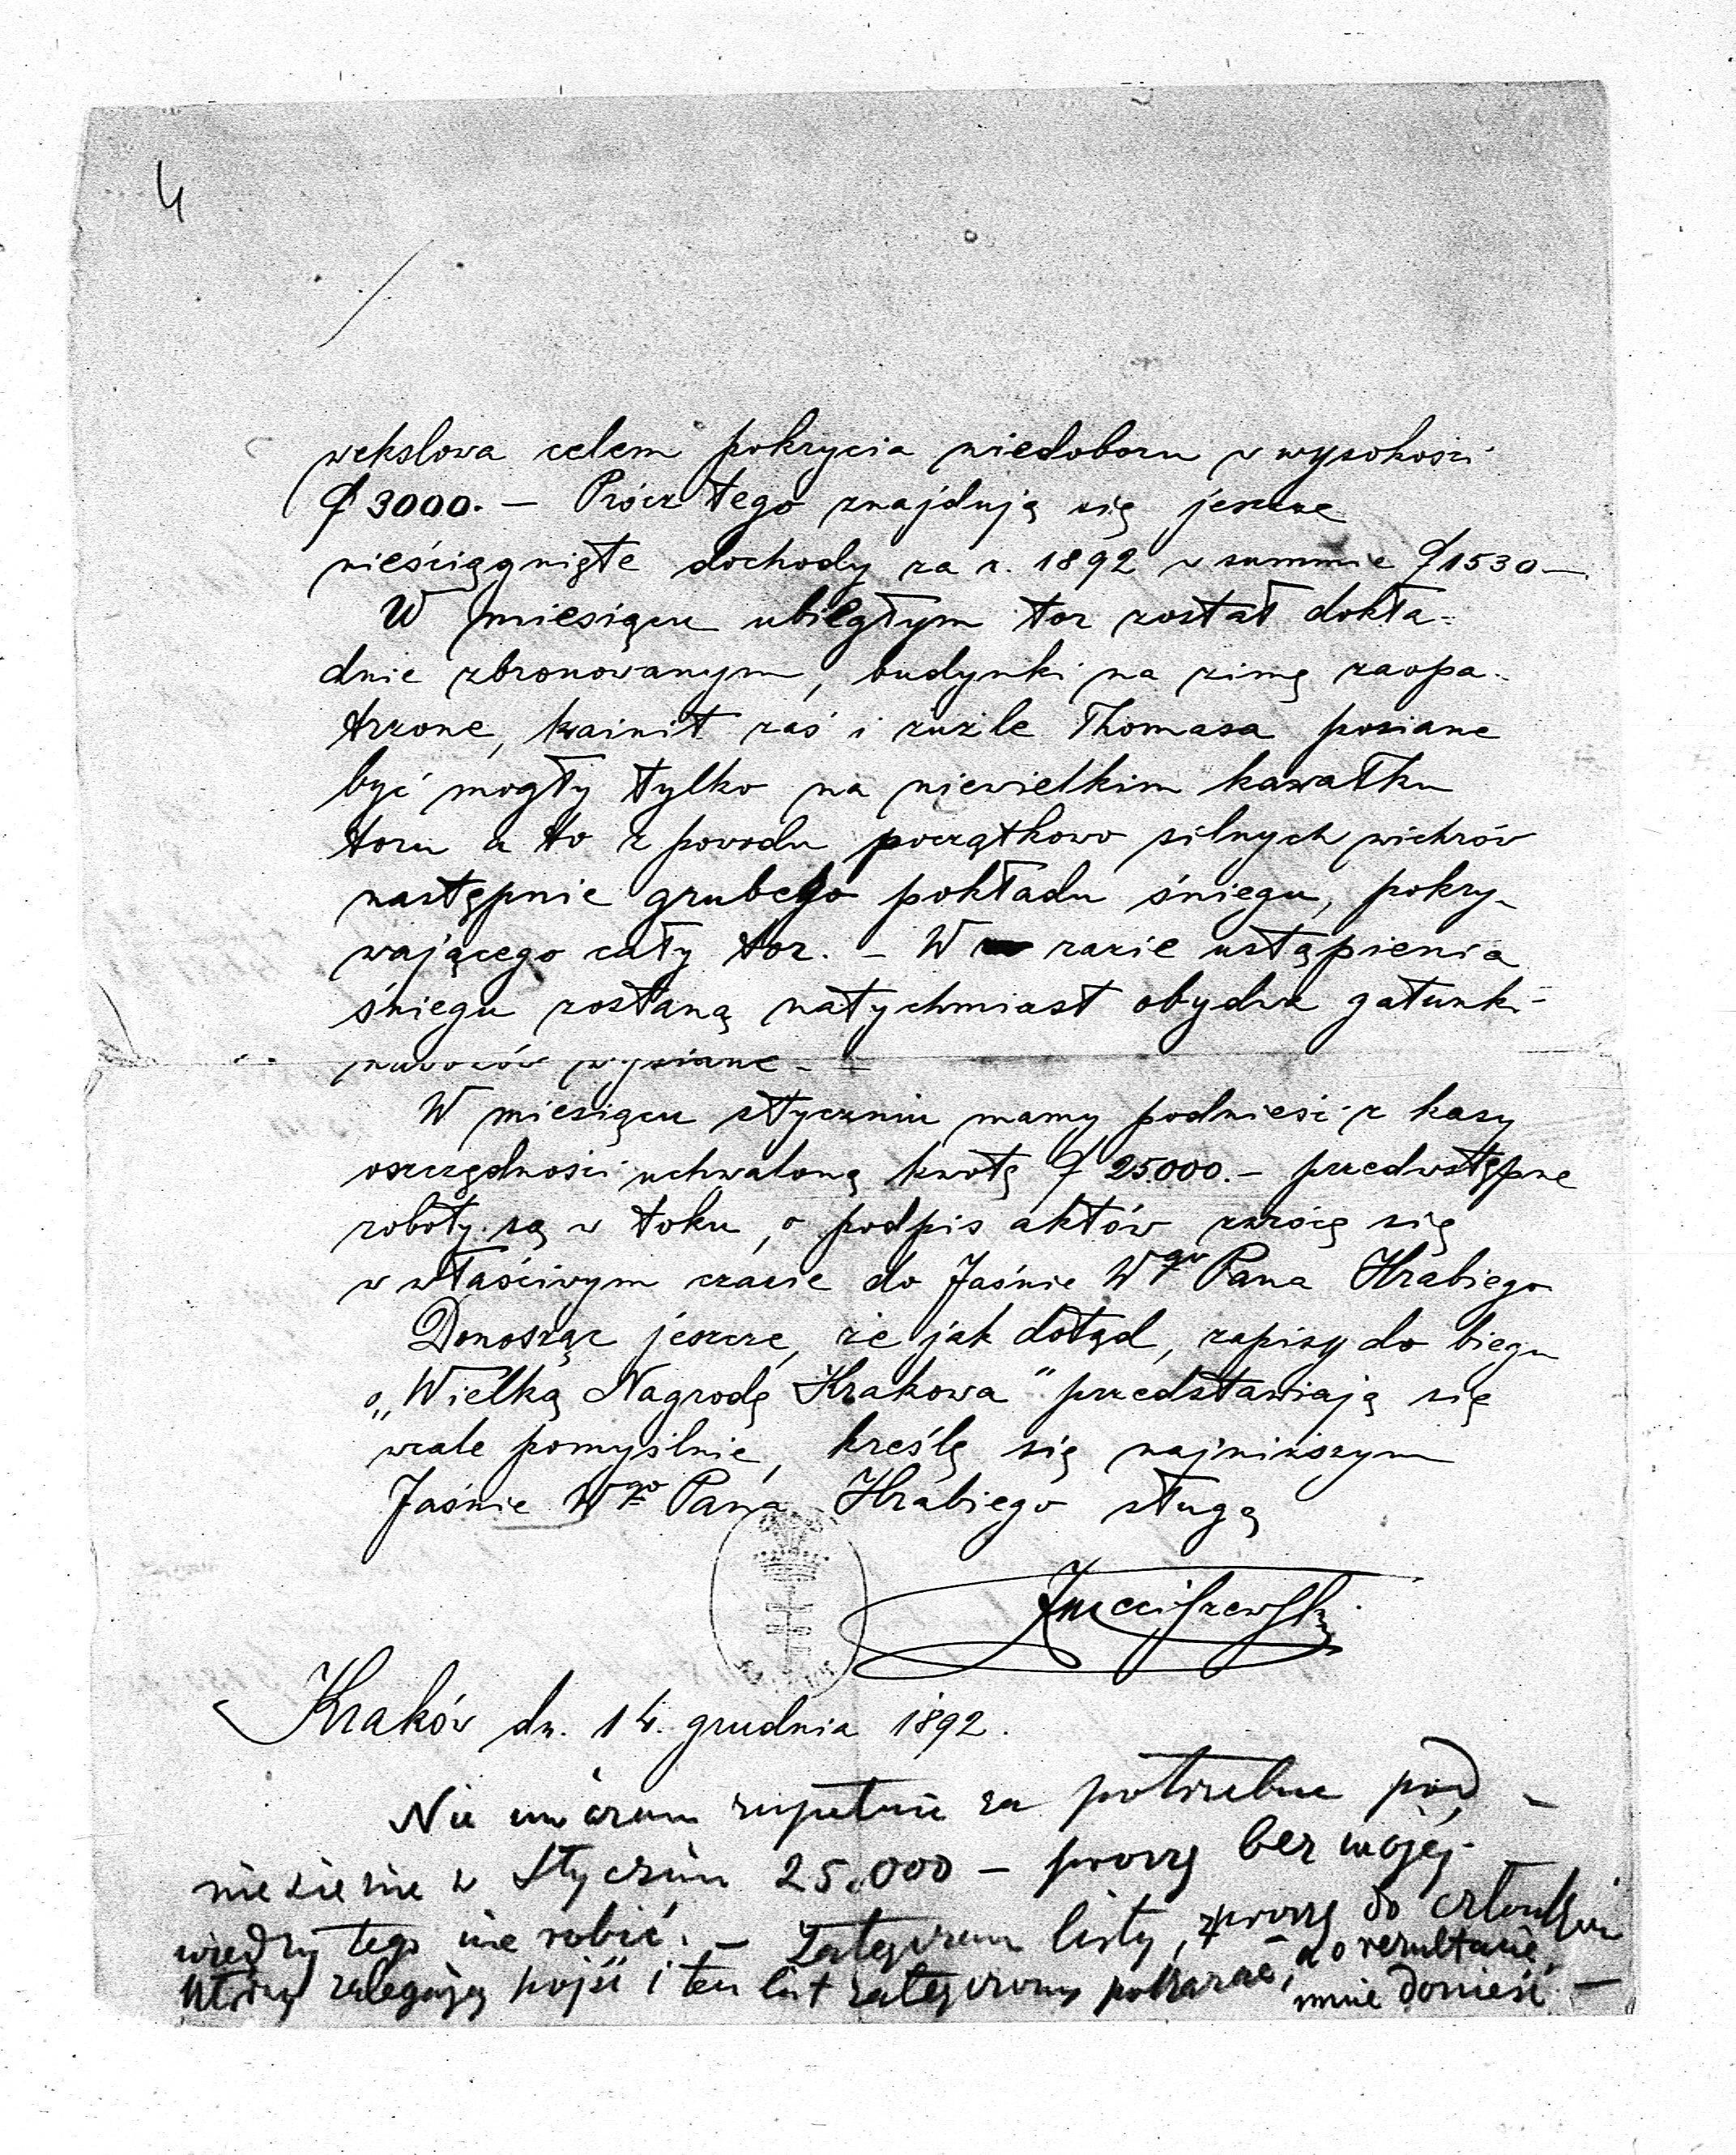 4
wekslowa celem pokrycia niedoboru w wysokości
f 3000.— Prócz tego znajdują się jeszcze
nieściągnięte dochody za r. 1892 w summie f 1530—.
W miesiącu ubiegłym tor został dokła-
dnie zbronowanym, budynki na zimę zaopa-
trzone, kainit zaś i żużle Thomasa posiane
być mogły tylko na niewielkim kawałku
toru a to z powodu początkowo silnych wichrów
następnie grubego pokładu śniegu, pokry-
wającego cały tor. — W razie ustąpienia
śniegu zostaną natychmiast obydwa gatunki
nawozów wysiane —
W miesiącu styczniu mamy podnieść z kasy
oszczędności uchwaloną kwotę f 25.000.— przedwstępne
roboty są w toku, o podpis aktów zwrócę się
w właściwym czasie do Jaśnie Wgo Pana Hrabiego
Donosząc jeszcze, że jak dotąd, zapisy do biegu
o „Wielką Nagrodę Krakowa" przedstawiają się
wcale pomyślnie, kreślę się najniższym
Jaśnie Wgo Pana Hrabiego sługą
Kraków dn. 14. grudnia 1892.
Nie uważam zupełnie za potrzebne pod-
niesienie w Styczniu 25.000 — proszę bez mojej
wiedzy tego nie robić. — Załączam listy, proszę do członków
którzy zalegają pójść i ten list załączony pokazać, a o rezultacie
mnie donieść —